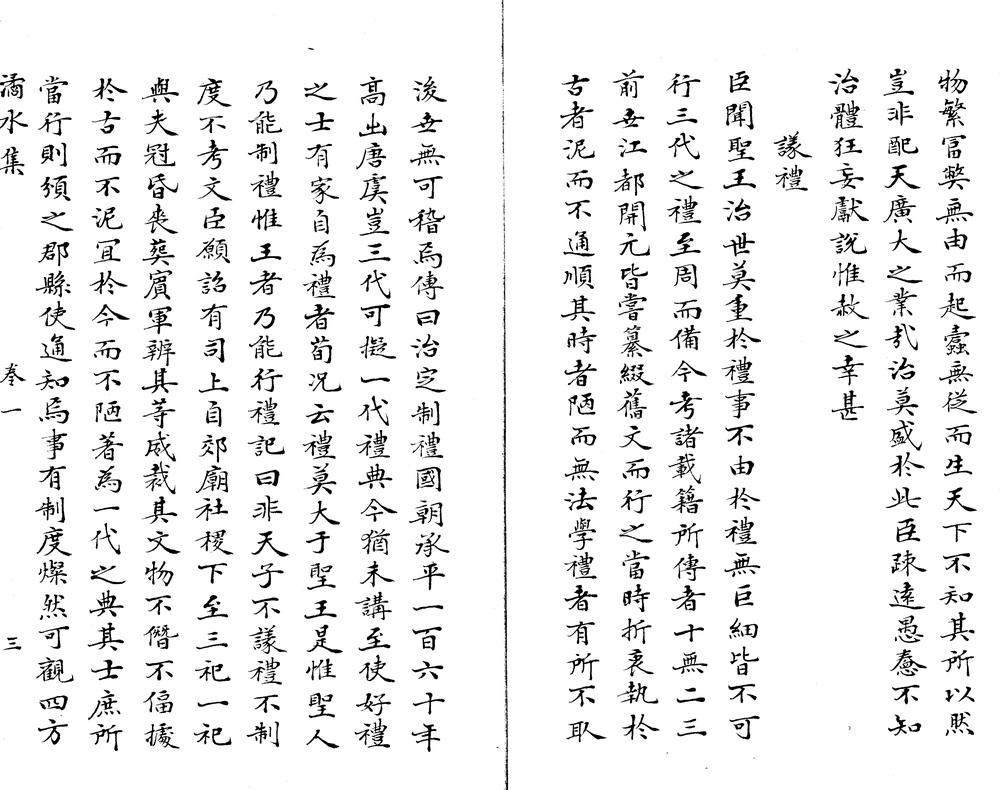 物繁富弊無由而起蠹無從而生天下不知其所以然
豈非配天廣大之業㢤治莫盛於此臣踈遠愚憃不知
治體狂妄獻說惟赦之幸甚
議禮
臣聞聖王治世莫重於禮事不由於禮無巨細皆不可
行三代之禮至周而備今考諸載籍所傳者十無二三
前世江都開元皆嘗纂綴舊文而行之當時折衷執於
古者泥而不通順其時者陋而無法學禮者有所不取
後世無可稽焉傳曰治定制禮國朝承平一百六十年
高出唐虞豈三代可擬一代禮典今猶未講至使好禮
之士有家自為禮者荀況云禮莫大于聖王是惟聖人
乃能制禮惟王者乃能行禮記曰非天子不議禮不制
度不考文臣願詔有司上自郊廟社稷下至三祀一祀
與夫冠昏喪葬賓軍辨其等威裁其文物不僭不偪據
於古而不泥宜於今而不陋著為一代之典其士庶所
當行則頒之郡縣使通知焉事有制度燦然可觀四方
潏水集 卷一 三